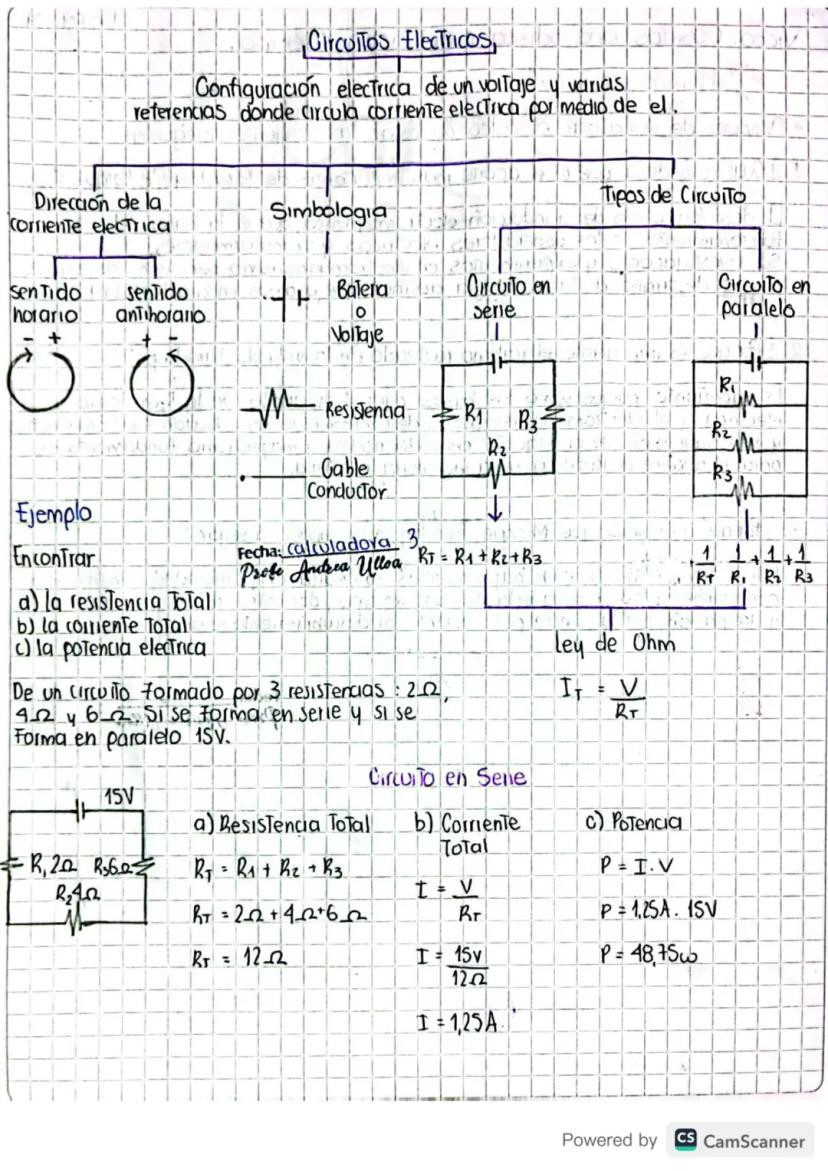 Circuitos Electricos
Configuración electrica de un voltaje y varias
referencias donde circula corriente electrica por medio de el.
Dirección de la
corriente electrica
sentido
horario
- +
sentido
antihorario
+ -
Simbologia
Batera
o
Voltaje
Resistencia
Cable
Conductor
Tipos de Circuito
Circuito en
serie
R1 R3
R2
RT = R1 + R2 + R3
Circuito en
paralelo
R1
R2
R3
1/RT 1/R1 + 1/R2 + 1/R3
Ley de Ohm
IT = V/RT
Fecha: calculadora 3
Profe Andrea Ulloa
Ejemplo
Encontrar
a) la resistencia Total
b) la corriente Total
c) la potencia electrica
De un circuito formado por 3 resistencias : 2Ω,
4Ω y 6Ω. Si se forma en serie y si se
Forma en paralelo 15V.
Circuito en Serie
15V
R1 2Ω R3 6Ω
R2 4Ω
a) Resistencia Total
RT = R1 + R2 + R3
RT = 2Ω + 4Ω + 6Ω
RT = 12Ω
b) Corriente
Total
I = V/RT
I = 15v/12Ω
I = 1,25A.
c) Potencia
P = I.V
P = 1,25A . 15V
P = 48,75w
Powered by CS CamScanner